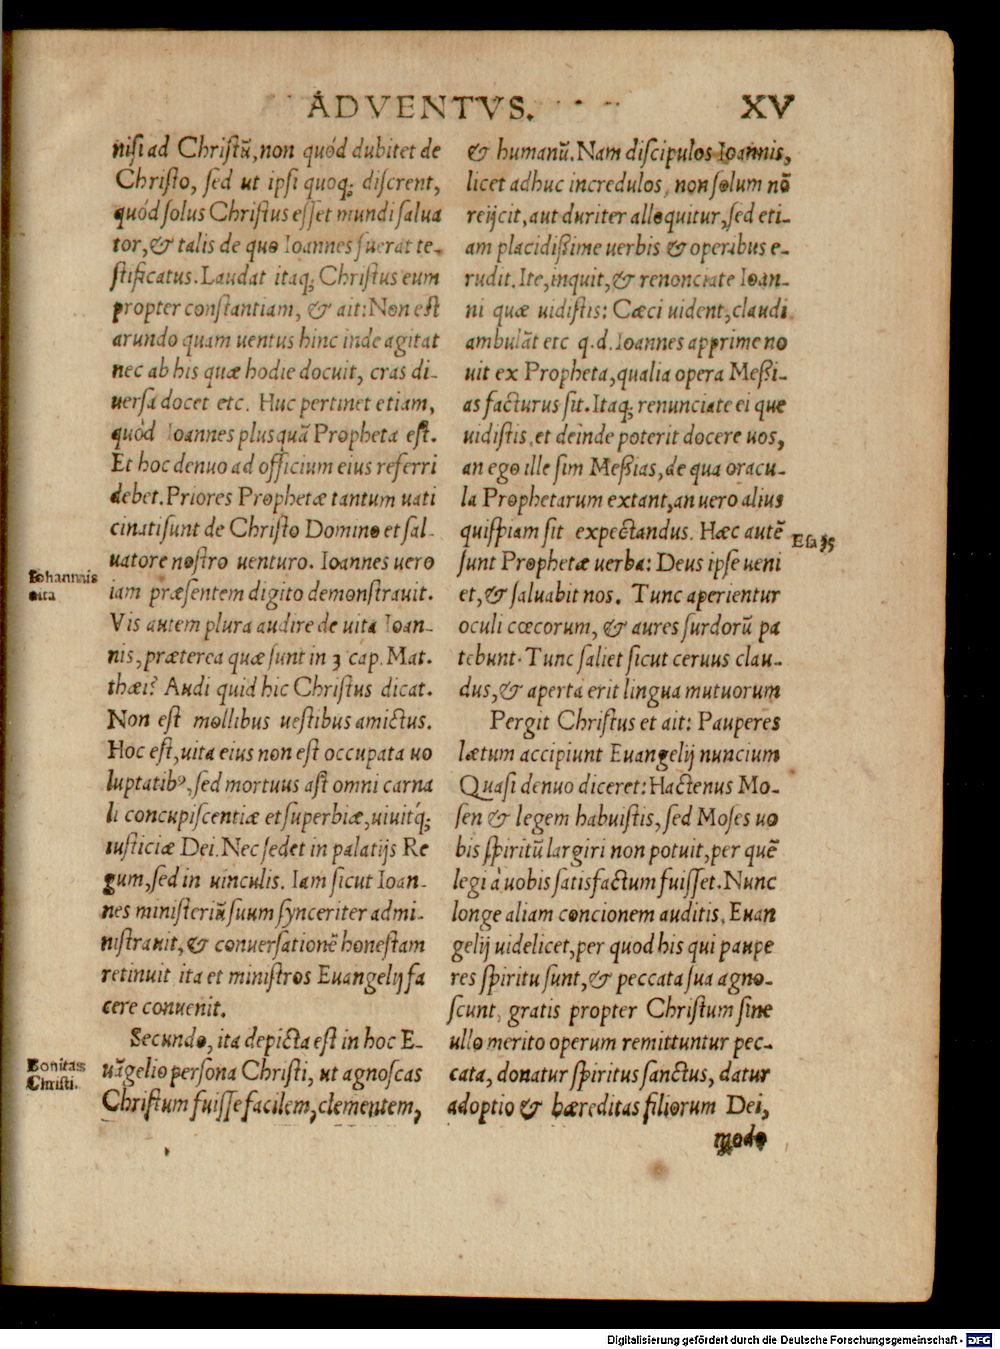 ADVENTVS. XV
nisi ad Christũ, non quód dubitet de
Christo, sed ut ipsi quoq; discrent,
quód solus Christus esset mundi salua
tor, & talis de quo Ioannes fuerat te-
stificatus. Laudat itaq; Christus eum
propter constantiam, & ait: Non est
arundo quam uentus hinc inde agitat
nec ab his quæ hodie docuit, cras di-
uersa docet etc. Huc pertinet etiam,
quòd Ioannes plusquã Propheta est.
Et hoc denuo ad officium eius referri
debet. Priores Prophetæ tantum uati
cinati sunt de Christo Domino et sal-
uatore nostro uenturo. Ioannes uero
Iohannis
uita
iam præsentem digito demonstrauit.
Vis autem plura audire de uita Ioan-
nis, præterea quæ sunt in 3 cap. Mat.
thæi? Audi quid hic Christus dicat.
Non est mollibus uestibus amictus.
Hoc est, uita eius non est occupata uo
luptatibꝰ, sed mortuus ast omni carna
li concupiscentiæ et superbiæ, uiuitq́;
iusticiæ Dei. Nec sedet in palatijs Re
gum, sed in uinculis. Iam sicut Ioan-
nes ministeriũ suum synceriter admi-
nistrauit, & conuersationẽ honestam
retinuit ita et ministros Euangelij fa
cere conuenit.
Secundo, ita depicta est in hoc E-
Bonitas
Christi.
uãgelio persona Christi, ut agnoscas
Christum fuisse facilem, clementem,
& humanũ. Nam discipulos Ioannis,
licet adhuc incredulos, non solum nõ
reijcit, aut duriter alloquitur, sed eti-
am placidißime uerbis & operibus e-
rudit. Ite, inquit, & renonciate Ioan-
ni quæ uidistis: Cæci uident, claudi
ambulãt etc q.d. Ioannes apprime no
uit ex Propheta, qualia opera Meßi-
as facturus sit. Itaq; renunciate ei que
uidistis, et deinde poterit docere uos,
an ego ille sim Meßias, de qua oracu-
la Prophetarum extant, an uero alius
quispiam sit expectandus. Hæc autẽ
Esa 35
sunt Prophetæ uerba: Deus ipse ueni
et, & saluabit nos. Tunc aperientur
oculi cœcorum, & aures surdorũ pa
tebunt. Tunc saliet sicut ceruus clau-
dus, & aperta erit lingua mutuorum
Pergit Christus et ait: Pauperes
lætum accipiunt Euangelij nuncium
Quasi denuo diceret: Hactenus Mo-
sen & legem habuistis, sed Moses uo
bis spiritũ largiri non potuit, per quẽ
legi à uobis satisfactum fuisset. Nunc
longe aliam concionem auditis, Euan
gelij uidelicet, per quod his qui paupe
res spiritu sunt, & peccata sua agno-
scunt, gratis propter Christum sine
ullo merito operum remittuntur pec-
cata, donatur spiritus sanctus, datur
adoptio & hæreditas filiorum Dei,
modo
Digitalisierung gefördert durch die Deutsche Forschungsgemeinschaft - DFG